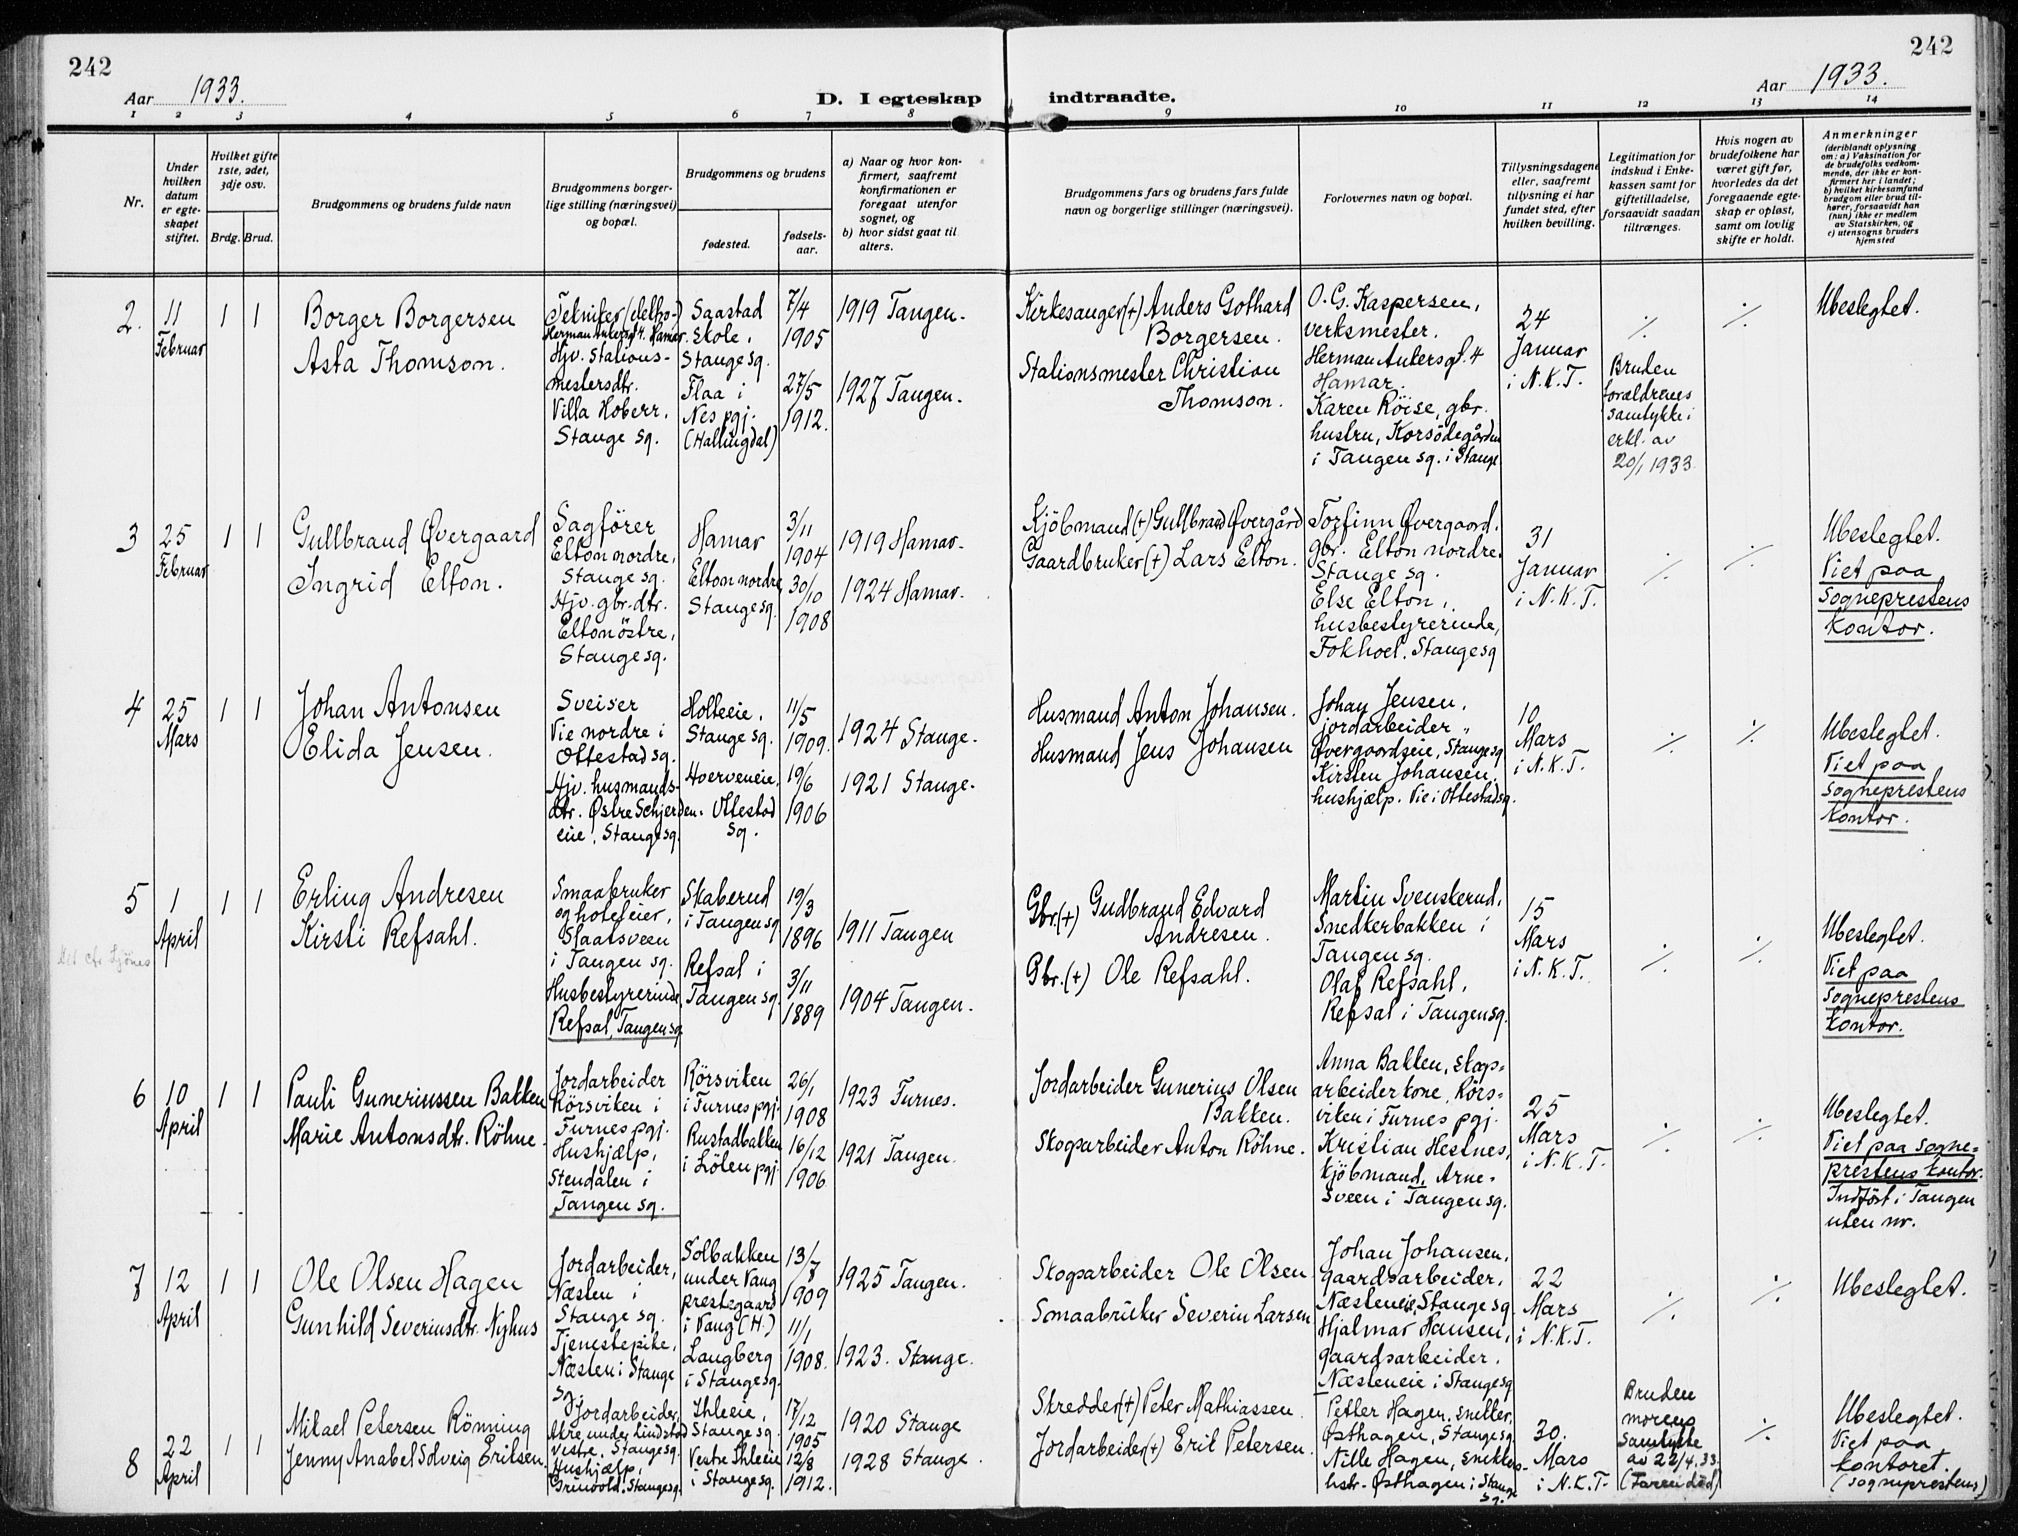 242
242
Aar 1933.
D. I egteskap indtraadte.
Aar 1933.
1 2 3 4 5 6 7 8 9 10 11 12 13 14
Nr.
Under
hvilken
datum
er egte-
skapet
stiftet.
Hvilket gifte
1ste, 2det,
3dje osv.
Brdg. Brud.
Brudgommens og brudens fulde navn
Brudgommens borger-
lige stilling (næringsvei)
og bopæl.
Brudgommens og brudens
fødested.
fødsels-
aar.
a) Naar og hvor kon-
firmert, saafremt
konfirmationen er
foregaat utenfor
sognet, og
b) hvor sidst gaat til
alters.
Brudgommens fars og brudens fars fulde
navn og borgerlige stillinger (næringsvei).
Forlovernes navn og bopæl.
Tillysningsdagene
eller, saafremt
tillysning ei har
fundet sted, efter
hvilken bevilling.
Legitimation for
indskud i Enke-
kassen samt for
giftetilladelse,
forsaavidt saadan
tiltrænges.
Hvis nogen av
brudefolkene har
været gift før,
hvorledes da det
foregaaende egte-
skap er opløst,
samt om lovlig
skifte er holdt.
Anmerkninger
(deriblandt oplysning
om: a) Vaksination for
de brudefolks vedkom-
mende, der ikke er kon-
firmert her i landet;
b) hvilket kirkesamfund
brudgom eller brud til-
hører, forsaavidt han
(hun) ikke er medlem
av Statskirken, og
c) utensogns bruders
hjemsted
2. 11 Februar 1 1
Borger Borgersen
Asta Thomson.
Herman Ankersgt. 4. Hamar.
Hjv. stations-
mestersdtr.
Villa Hoberr,
Stange sq.
Saastad
Skole,
Stange sq.
Flaa i
Nes pgj.
(Hallingdal)
7/4
1905
27/5
1912.
1919 Tangen.
1927 Tangen.
Kirkesanger(+) Anders Gothard
Borgersen.
Stationsmester Christian
Thomson.
O. G. Kaspersen,
verksmester.
Herman Ankersgt. 4
Hamar.
Karen Röise, gbr.
hustru, Korsödegården
i Tangen sq. i Stange
24
Januar
i N.K.T.
./.
Bruden
forældrenes
samtykke i
erkl. av
20/1 1933
./.
Ubeslegtet.
3 25 Februar 1 1
Gullbrand Øvergaard
Ingrid Elton.
Sagförer
Elton nordre,
Stange sq.
Hjv. gbr. dtr.
Elton östre,
Stange sq.
Hamar
Elton nordre
Stange sq.
3/11
1904
30/10
1908
1919 Hamar.
1924 Hamar.
Kjöbmand(+) Gullbrand Øvergård
Gaardbruker(+) Lars Elton.
Torfinn Øvergaard.
gbr. Elton nordre.
Stange sq.
Else Elton,
husbestyrerinde,
Fokhoel. Stange sq
31
Januar
i N.K.T.
./.
./.
Ubeslegtet.
Viet paa
Sogneprestens
Kontor.
4 25 Mars 1 1
Johan Antonsen
Elida Jensen.
Sveiser
Vie nordre i
Ottestad sq.
Hjv. husmands-
dtr. Østre Schjerden-
eie, Stange sq.
Holteeie,
Stange sq.
Hverveneie,
Ottestad
sq.
11/5
1909.
19/6
1906
1924 Stange.
1921 Stange.
Husmand Anton Johansen.
Husmand Jens Johansen
Johan Jensen,
jordarbeider
Øvergaardseie, Stange sq
Kirsten Johansen,
hushjælp. Vie i Ottestad sq.
10
Mars
i N.K.T.
./.
./.
Ubeslegtet.
Viet paa
Sogneprestens
Kontor.
5 1 April 1 1
Erling Andresen
Kirsti Refsahl.
Smaabruker
og hoteleier,
Slaatsveen
i Tangen sq.
Husbestyrerinde
Refsal, Tangen sq
Skaberud
i Tangen sq
Refsal i
Tangen sq.
19/3
1896
3/11
1889
1911 Tangen
1904 Tangen.
Gbr.(+) Gudbrand Edvard
Andresen.
Gbr.(+) Ole Refsahl.
Martin Svenskerud,
Snedkerbakken i
Tangen sq.
Olaf Refsahl,
Refsal i Tangen sq.
15
Mars
i N.K.T.
./.
./.
Ubeslegtet.
Viet paa
Sogneprestens
Kontor.
6 10 April 1 1
Pauli Guneriussen Bakken
Marie Antonsdtr. Röhne.
Jordarbeider
Rörsviken i
Furnes pgj.
Hushjælp,
Stendalen i
Tangen sq.
Rörsviken
i Furnes pgj.
Rustadbakken
i Löten pgj.
26/1
1908
16/12
1906
1923 Furnes.
1921 Tangen.
Jordarbeider Gunerius Olsen
Bakken.
Skogarbeider Anton Röhne.
Anna Bakken, skogs-
arbeider kone, Rörs-
viken i Furnes pgj.
Kristian Hestnes,
kjöbmand, Arne-
sveen i Tangen sq.
25
Mars
i N.K.T.
./.
./.
Ubeslegtet.
Viet paa Sogne-
prestens Kontor.
Indfört i Tangen
uten nr.
7 12 April 1 1
Ole Olsen Hagen
Gunhild Severinsdtr. Nyhus
Jordarbeider,
Næsten i
Stange sq.
Tjenestepike,
Næsten i Stange
sq.
Solbakken
under Vang
prestegaard
i Vang (H.)
Langberg
i Stange sq.
13/8
1909
11/1
1908.
1925 Tangen.
1923. Stange.
Skogsarbeider Ole Olsen
Smaabruker Severin Larsen
Johan Johansen,
gaardsarbeider,
Næsteneie, Stange sq.
Hjalmar Hansen,
gaardsarbeider.
Næsteneie i Stange sq
22
Mars
i N.K.T.
./.
./.
Ubeslegtet.
8 22 April 1 1
Mikael Petersen Rönning
Jenny Anabel Solveig Eriksen.
Jordarbeider,
Atre under Lindstad
vestre, Stange sq.
Hushjælp,
Grinvold. Stange sq.
Ihleeie,
Stange sq.
Vestre Ihleeie
i Stange sq.
17/12
1905
12/8
1912.
1920 Stange
1928 Stange.
Skredder(+) Peter Mathiassen.
Jordarbeider(+) Erik Petersen.
Petter Hagen, snekker,
Østhagen, Stange sq.
Nille Hagen, snekkers-
hstr. Østhagen i Stange
sq.
30.
Mars
i N.K.T.
Bruden
morens
Samtykke
av 22/4.33.
(Faren död)
./.
Ubeslegtet.
Viet paa
Kontoret.
(Sogneprestens)